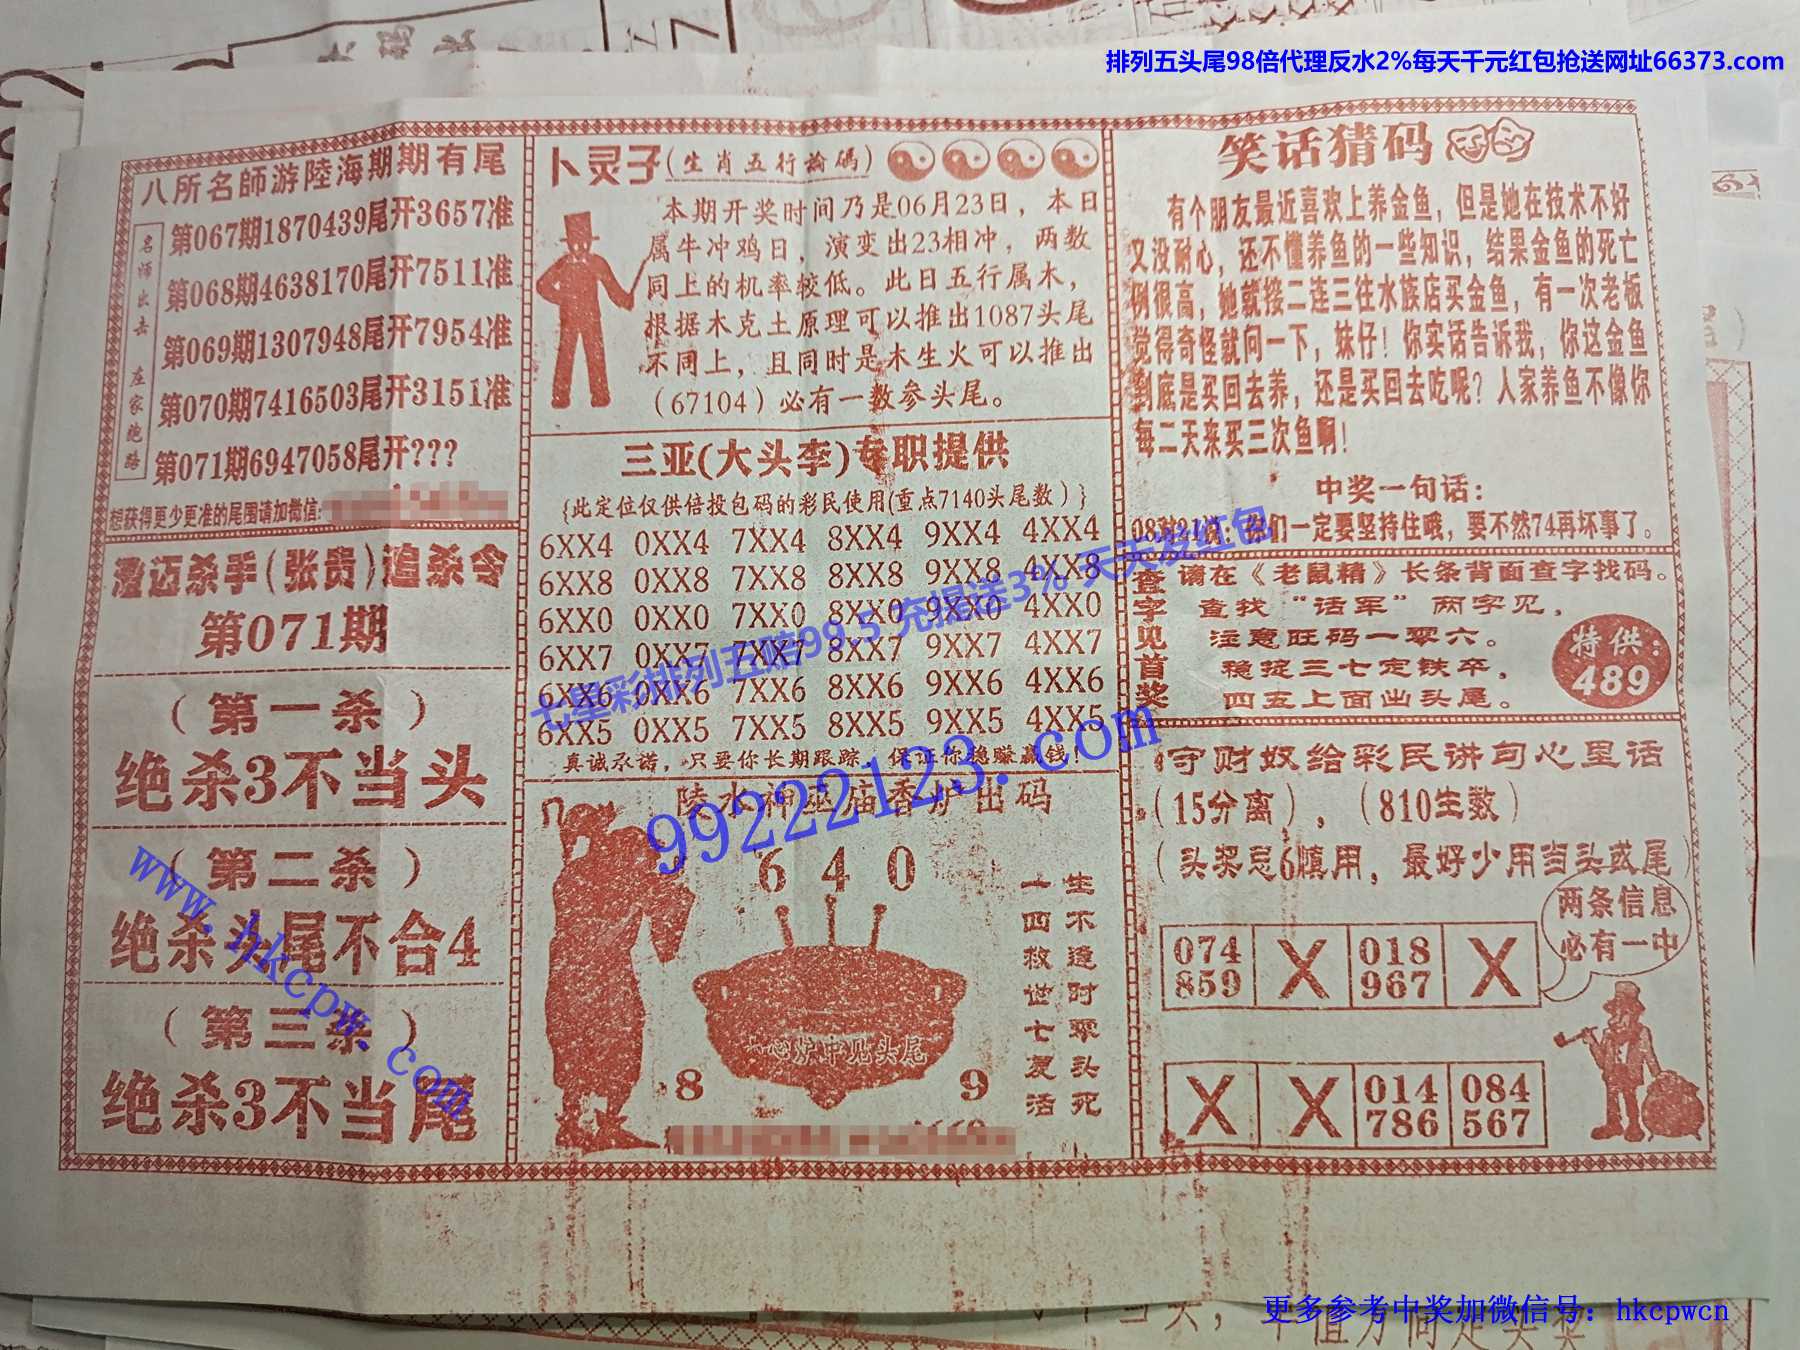 排列五头尾98倍代理反水2%每天千元红包抢送网址66373.com
八所名師游陸海期期有尾
名师出击 在家跑路
第067期1870439尾开3657准
第068期4638170尾开7511准
第069期1307948尾开7954准
第070期7416503尾开3151准
第071期6947058尾开???
想获得更少更准的尾围请加微信:
澄迈杀手(张贵)追杀令
第071期
(第一杀)
绝杀3不当头
(第二杀)
绝杀头尾不合4
(第三杀)
绝杀3不当尾
卜灵子(生肖五行論碼)
本期开奖时间乃是06月23日，本日
属牛冲鸡日，演变出23相冲，两数
同上的机率较低。此日五行属木，
根据木克土原理可以推出1087头尾
不同上，且同时是木生火可以推出
(67104)必有一数参头尾。
三亚(大头李)专职提供
{此定位仅供倍投包码的彩民使用(重点7140头尾数)}
6XX4 0XX4 7XX4 8XX4 9XX4 4XX4
6XX8 0XX8 7XX8 8XX8 9XX8 4XX8
6XX0 0XX0 7XX0 8XX0 9XX0 4XX0
6XX7 0XX7 7XX7 8XX7 9XX7 4XX7
6XX6 0XX6 7XX6 8XX6 9XX6 4XX6
6XX5 0XX5 7XX5 8XX5 9XX5 4XX5
真诚承诺，只要你长期跟踪，保证你稳赚赢钱!
陵水神巫庙香炉出码
6 4 0
生不逢时零头死
十四救世七复活
一心炉中见头尾
8 9
笑话猜码
有个朋友最近喜欢上养金鱼，但是她在技术不好
又没耐心，还不懂养鱼的一些知识，结果金鱼的死亡
例很高，她就接二连三往水族店买金鱼，有一次老板
觉得奇怪就问一下，妹仔！你实话告诉我，你这金鱼
到底是买回去养，还是买回去吃呢？人家养鱼不像你
每二天来买三次鱼啊！
中奖一句话：
08对21说：你们一定要坚持住哦，要不然74再坏事了。
查字见首奖
请在《老鼠精》长条背面查字找码。
查找“话军”两字见，
注意旺码一零六。
稳掟三七定铁卒，
四五上面出头尾。
特供：
489
守财奴给彩民讲句心里话
(15分离)，(810生数)
(头奖忌6慎用，最好少用当头或尾)
两条信息
必有一中
074 859 X 018 967 X
X X 014 786 084 567
七星彩排列五赔99.5 充提送3% 天天发红包
99222123.com
www.hkcpw.com
更多参考中奖加微信号：hkcpwcn